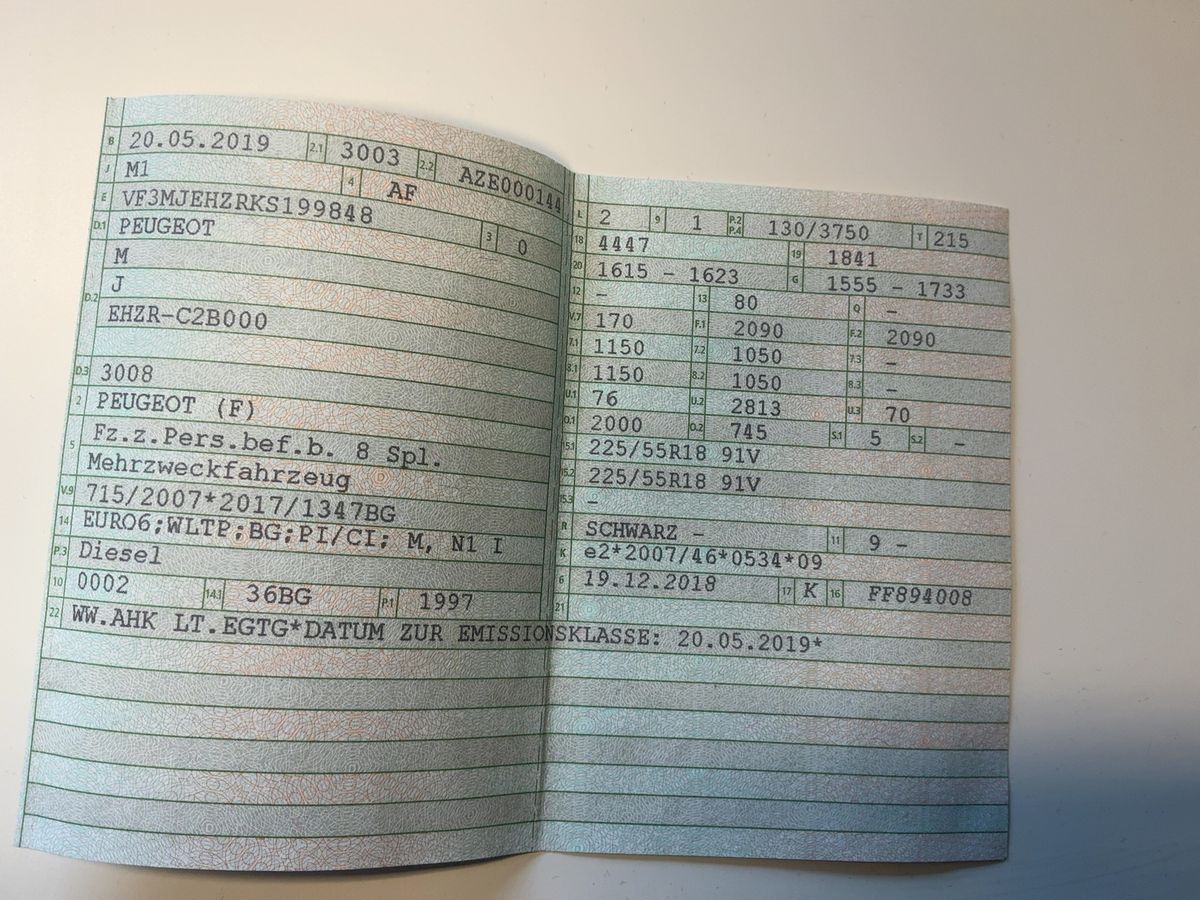 B 20.05.2019 2.1 3003 2.2 AZE000144
J M1 4 AF
E VF3MJEHZRKS199848 3 0
D.1 PEUGEOT
M
D.2 J
EHZR-C2B000
D.3 3008
2 PEUGEOT (F)
5 Fz.z.Pers.bef.b. 8 Spl.
Mehrzweckfahrzeug
V.9 715/2007*2017/1347BG
14 EURO6;WLTP;BG;PI/CI; M, N1 I
P.3 Diesel
10 0002 14.1 36BG P.1 1997
22 WW.AHK LT.EGTG*DATUM ZUR EMISSIONSKLASSE: 20.05.2019*
L 2 9 1 P.2 P.4 130/3750 T 215
18 4447 19 1841
20 1615 - 1623 G 1555 - 1733
12 - 13 80 Q -
V.7 170 F.1 2090 F.2 2090
7.1 1150 7.2 1050 7.3 -
8.1 1150 8.2 1050 8.3 -
U.1 76 U.2 2813 U.3 70
O.1 2000 O.2 745 S.1 5 S.2 -
15.1 225/55R18 91V
15.2 225/55R18 91V
15.3 -
R SCHWARZ - 11 9 -
K e2*2007/46*0534*09
6 19.12.2018 17 K 16 FF894008
21